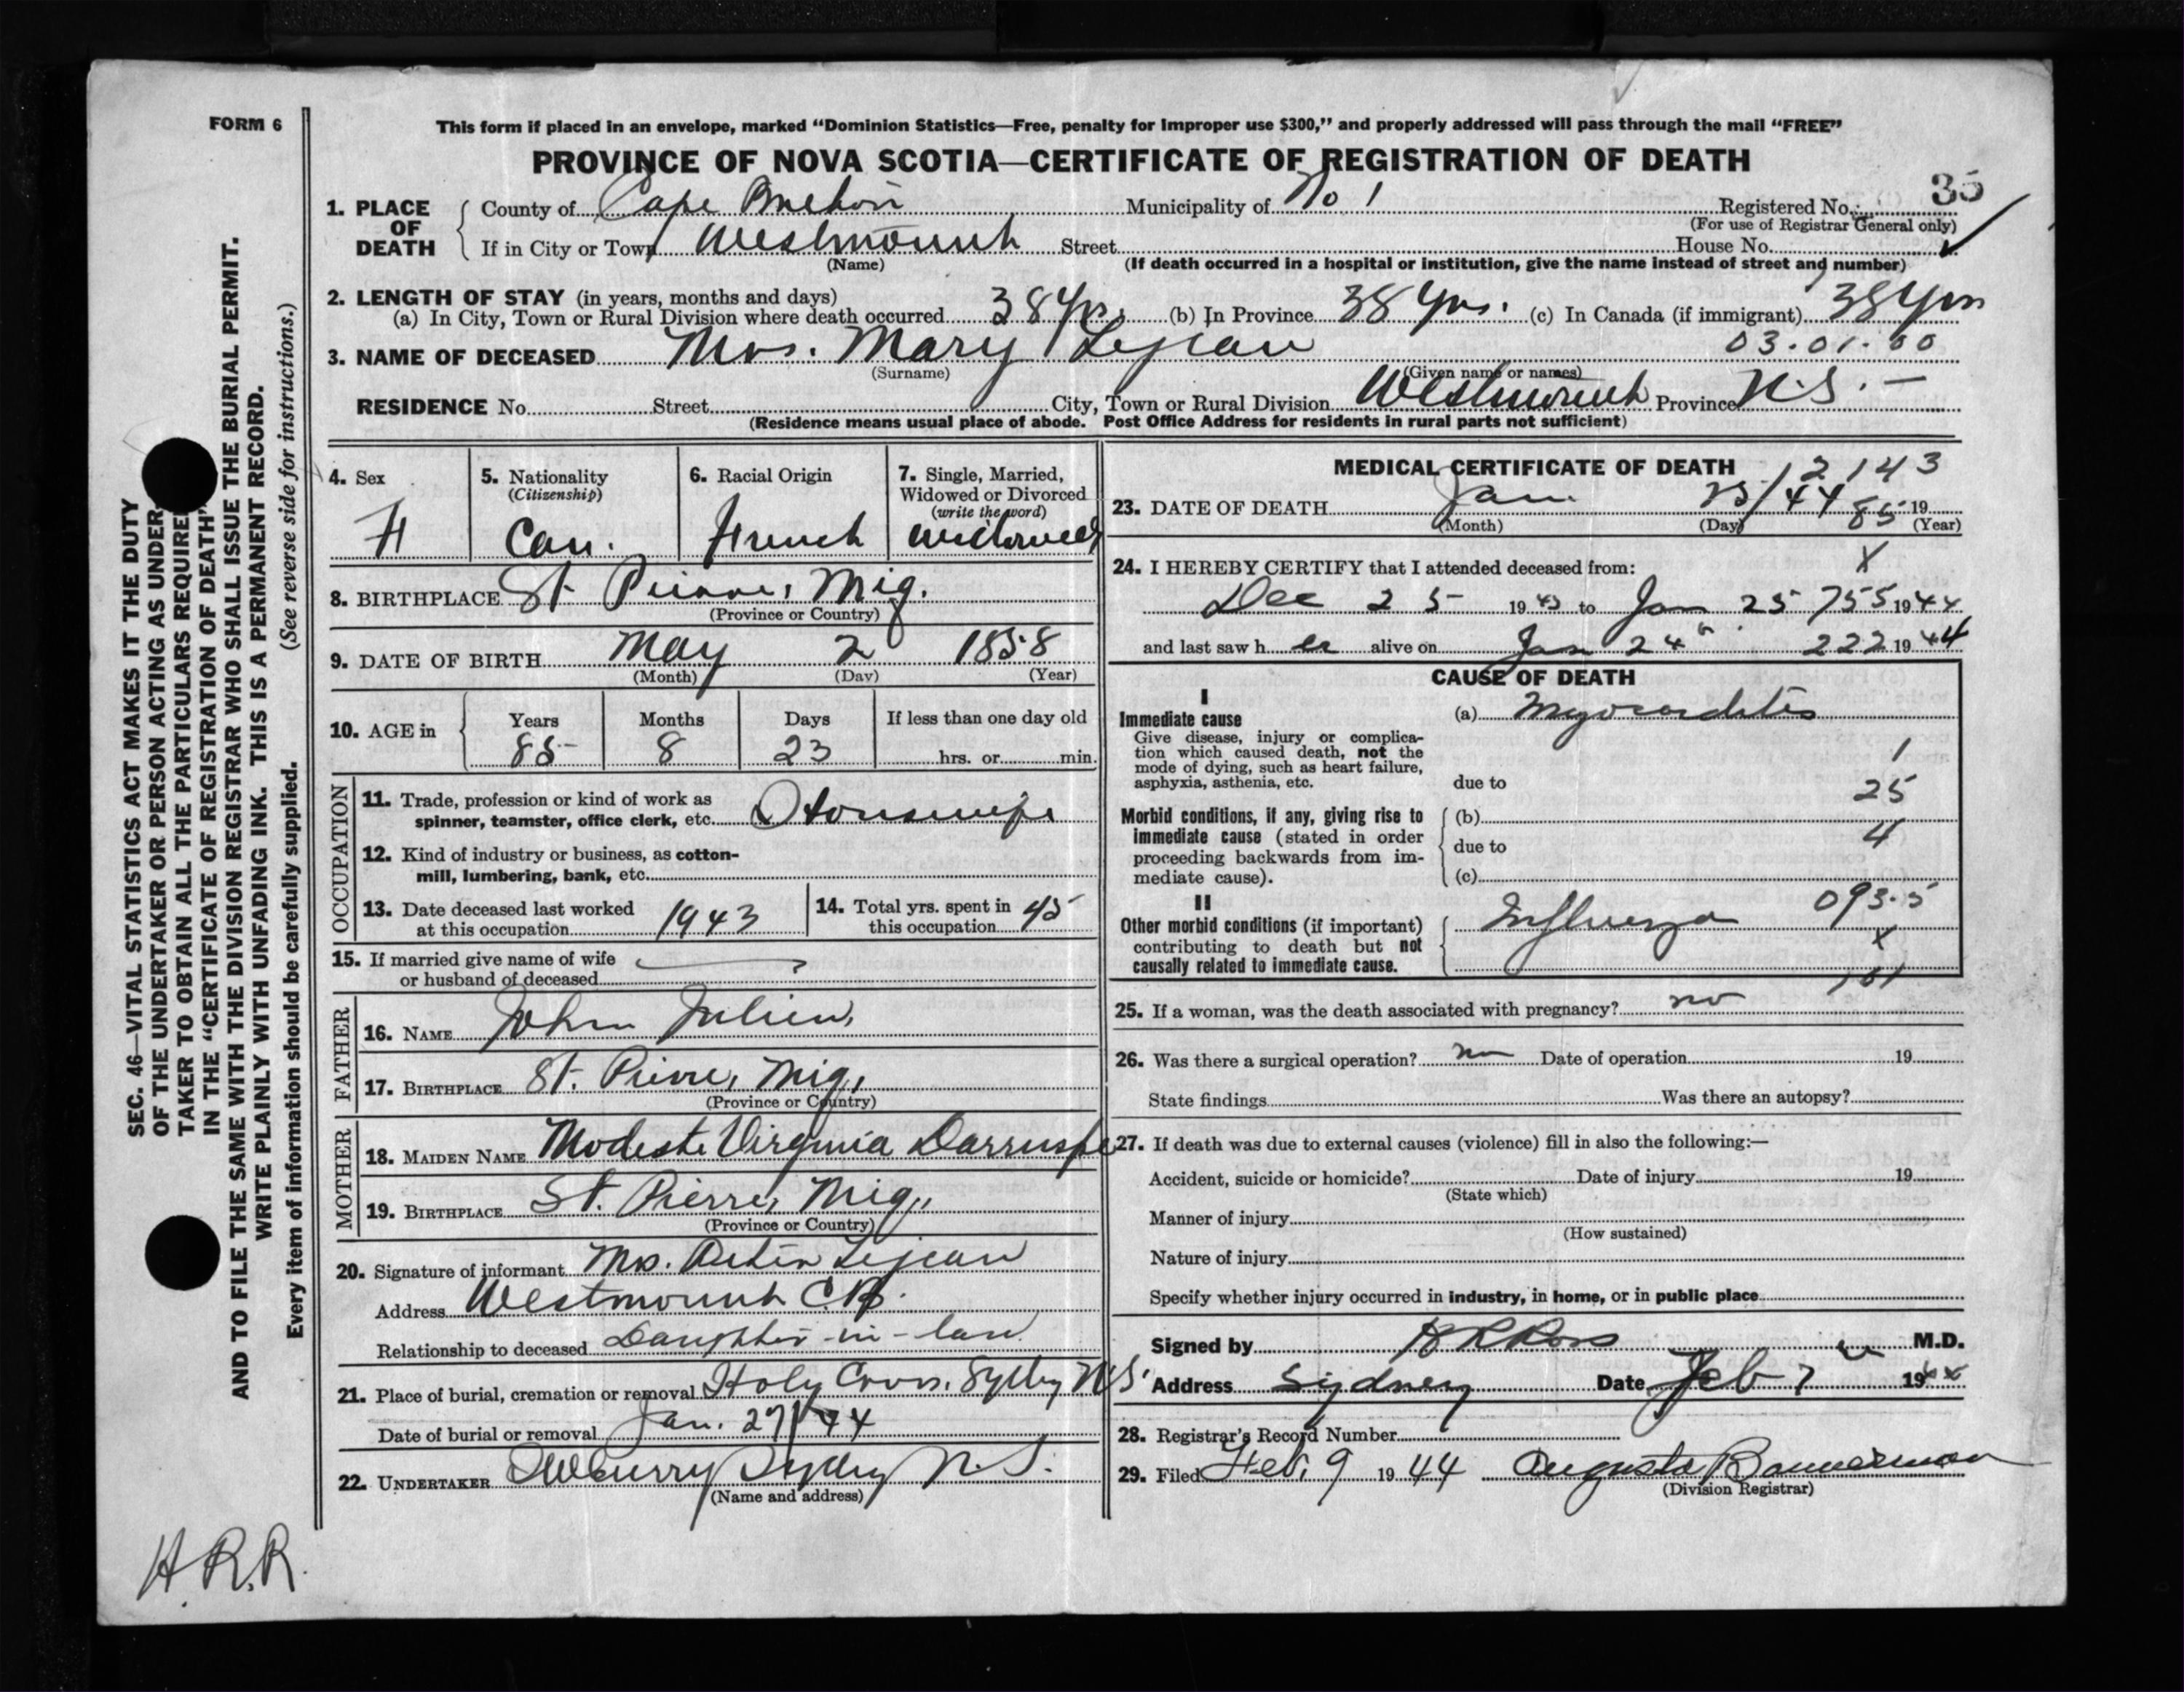 FORM 6
This form if placed in an envelope, marked "Dominion Statistics—Free, penalty for Improper use $300," and properly addressed will pass through the mail "FREE"
PROVINCE OF NOVA SCOTIA—CERTIFICATE OF REGISTRATION OF DEATH
35
1. PLACE OF DEATH
County of Cape Breton Municipality of No 1 Registered No.
(For use of Registrar General only)
If in City or Town Westmount Street House No.
(Name) (If death occurred in a hospital or institution, give the name instead of street and number)
2. LENGTH OF STAY (in years, months and days)
(a) In City, Town or Rural Division where death occurred 38 Yrs. (b) In Province 38 Yrs. (c) In Canada (if immigrant) 38 Yrs
3. NAME OF DECEASED Mrs. Mary Lejean 03.01.00
(Surname) (Given name or names)
RESIDENCE No. Street City, Town or Rural Division Westmount Province N.S. —
(Residence means usual place of abode. Post Office Address for residents in rural parts not sufficient)
4. Sex
F
5. Nationality
(Citizenship)
Can.
6. Racial Origin
French
7. Single, Married,
Widowed or Divorced
(write the word)
Widowed
8. BIRTHPLACE St. Pierre, Miq.
(Province or Country)
9. DATE OF BIRTH May 2 1858
(Month) (Day) (Year)
10. AGE in Years Months Days If less than one day old
85 8 23 hrs. or min.
OCCUPATION
11. Trade, profession or kind of work as
spinner, teamster, office clerk, etc. Housewife
12. Kind of industry or business, as cotton-
mill, lumbering, bank, etc.
13. Date deceased last worked
at this occupation 1943
14. Total yrs. spent in
this occupation 45
15. If married give name of wife
or husband of deceased
FATHER
16. NAME John Julien,
17. BIRTHPLACE St. Pierre, Miq,
(Province or Country)
MOTHER
18. MAIDEN NAME Modeste Virginia Darruspe
19. BIRTHPLACE St. Pierre, Miq,
(Province or Country)
20. Signature of informant Mrs. Lejean
Address Westmount C.B.
Relationship to deceased Daughter-in-law
21. Place of burial, cremation or removal Holy Cross, Sydney N.S.
Date of burial or removal Jan. 27/44
22. UNDERTAKER Curry Sydney N.S.
(Name and address)
MEDICAL CERTIFICATE OF DEATH
12143
23. DATE OF DEATH Jan. 25/44 85 19
(Month) (Day) (Year)
24. I HEREBY CERTIFY that I attended deceased from: X
Dec 25 1943 to Jan 25 755 1944
and last saw her alive on Jan 24 222 1944
CAUSE OF DEATH
I
Immediate cause
Give disease, injury or complica-
tion which caused death, not the
mode of dying, such as heart failure,
asphyxia, asthenia, etc.
(a) Myocarditis
1
due to
25
Morbid conditions, if any, giving rise to
immediate cause (stated in order
proceeding backwards from im-
mediate cause).
(b)
4
due to
(c)
II
Other morbid conditions (if important)
contributing to death but not
causally related to immediate cause.
Influenza 093.5
X
101
25. If a woman, was the death associated with pregnancy? no
26. Was there a surgical operation? no Date of operation 19
State findings Was there an autopsy?
27. If death was due to external causes (violence) fill in also the following:—
Accident, suicide or homicide? Date of injury 19
(State which)
Manner of injury
(How sustained)
Nature of injury
Specify whether injury occurred in industry, in home, or in public place
Signed by H R Ross M.D.
Address Sydney Date Feb 7 1944
28. Registrar's Record Number
29. Filed Feb. 9 1944 Augusta Bannerman
(Division Registrar)
SEC. 46—VITAL STATISTICS ACT MAKES IT THE DUTY
OF THE UNDERTAKER OR PERSON ACTING AS UNDER-
TAKER TO OBTAIN ALL THE PARTICULARS REQUIRED
IN THE "CERTIFICATE OF REGISTRATION OF DEATH"
AND TO FILE THE SAME WITH THE DIVISION REGISTRAR WHO SHALL ISSUE THE BURIAL PERMIT.
WRITE PLAINLY WITH UNFADING INK. THIS IS A PERMANENT RECORD.
Every item of information should be carefully supplied. (See reverse side for instructions.)
H.R.R.